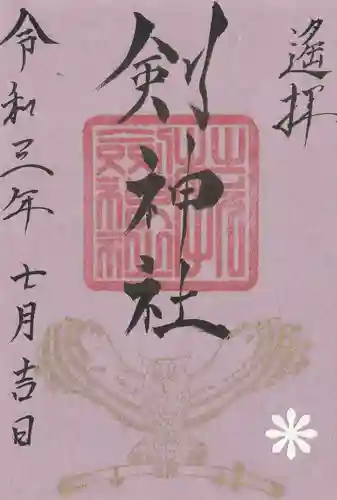 遙拝
剣神社
令和三年 七月吉日